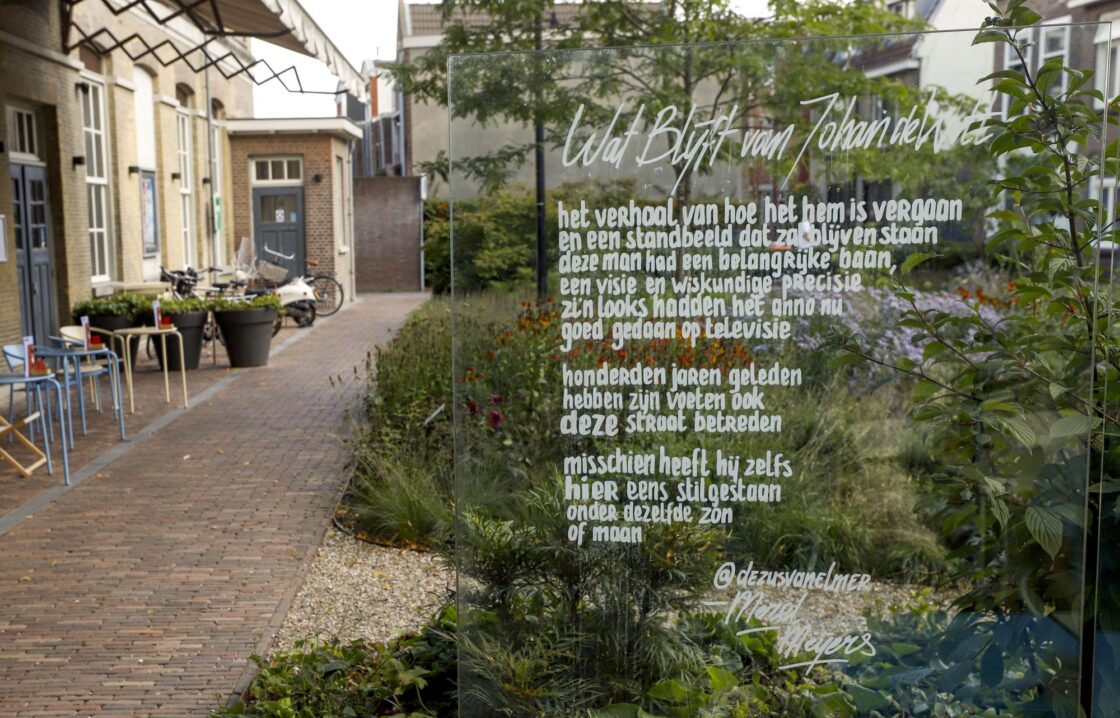 Wat Blijft van Johan de Witt
het verhaal van hoe het hem is vergaan
en een standbeeld dat zal blijven staan
deze man had een belangrijke baan,
een visie en wiskundige precisie
zijn looks hadden het anno nu
goed gedaan op televisie
honderden jaren geleden
hebben zijn voeten ook
deze straat betreden
misschien heeft hij zelfs
hier eens stilgestaan
onder dezelfde zon
of maan
@dezusvanelmer
Merel
Meyers